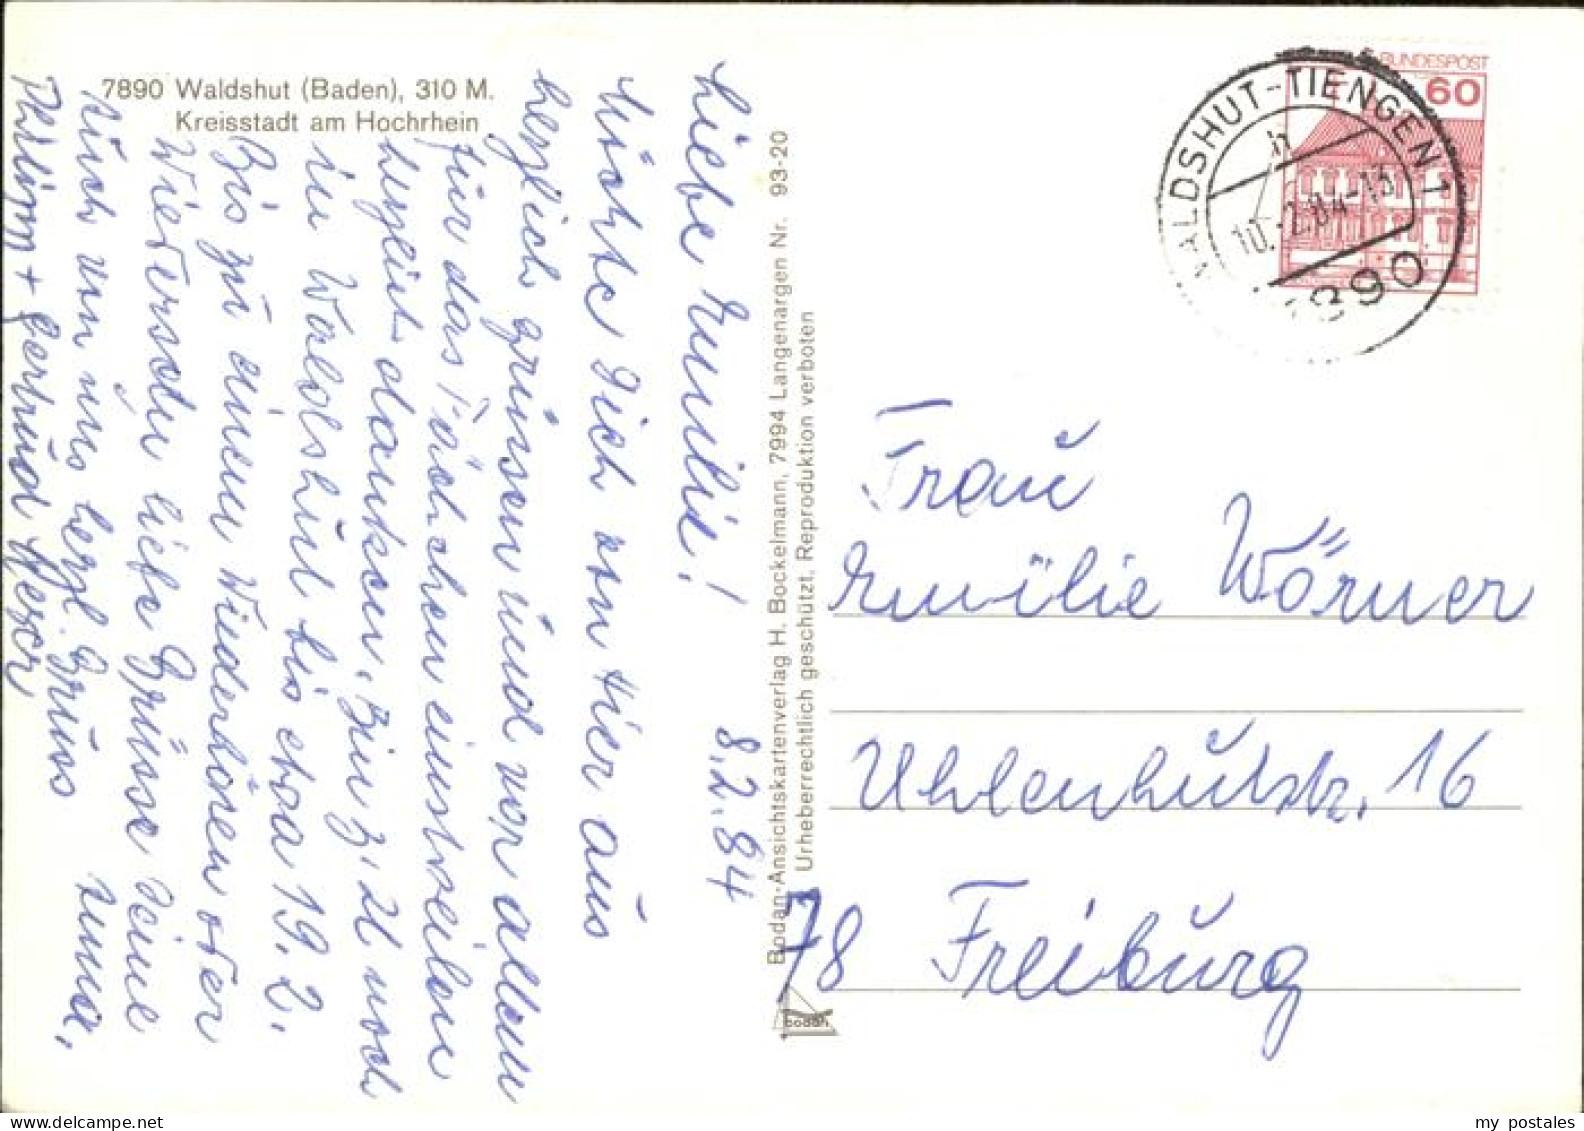 7890 Waldshut (Baden), 310 M.
Kreisstadt am Hochrhein
8.2.84
Liebe Emilie!
Möchte Dich von Hier aus
herzlich grüssen und vor allem
für das Päckchen einstweilen
herzlich danken. Bin z. Zt noch
in Waldshut bis etwa 19.2.
Bis zu einem Wiederhören oder
Wiedersehn liebe Grüsse Deine
Anna,
Auch von uns herzl. Grüss
+ Gertrud
Bodan-Ansichtskartenverlag H. Bockelmann, 7994 Langenargen Nr. 93-20
Urheberrechtlich geschützt, Reproduktion verboten
bodan
BUNDESPOST
60
WALDSHUT-TIENGEN 1
h
10.-2.84-18
7890
Frau
Emilie Wörner
Uhlenhutstr. 16
78 Freiburg
my postales